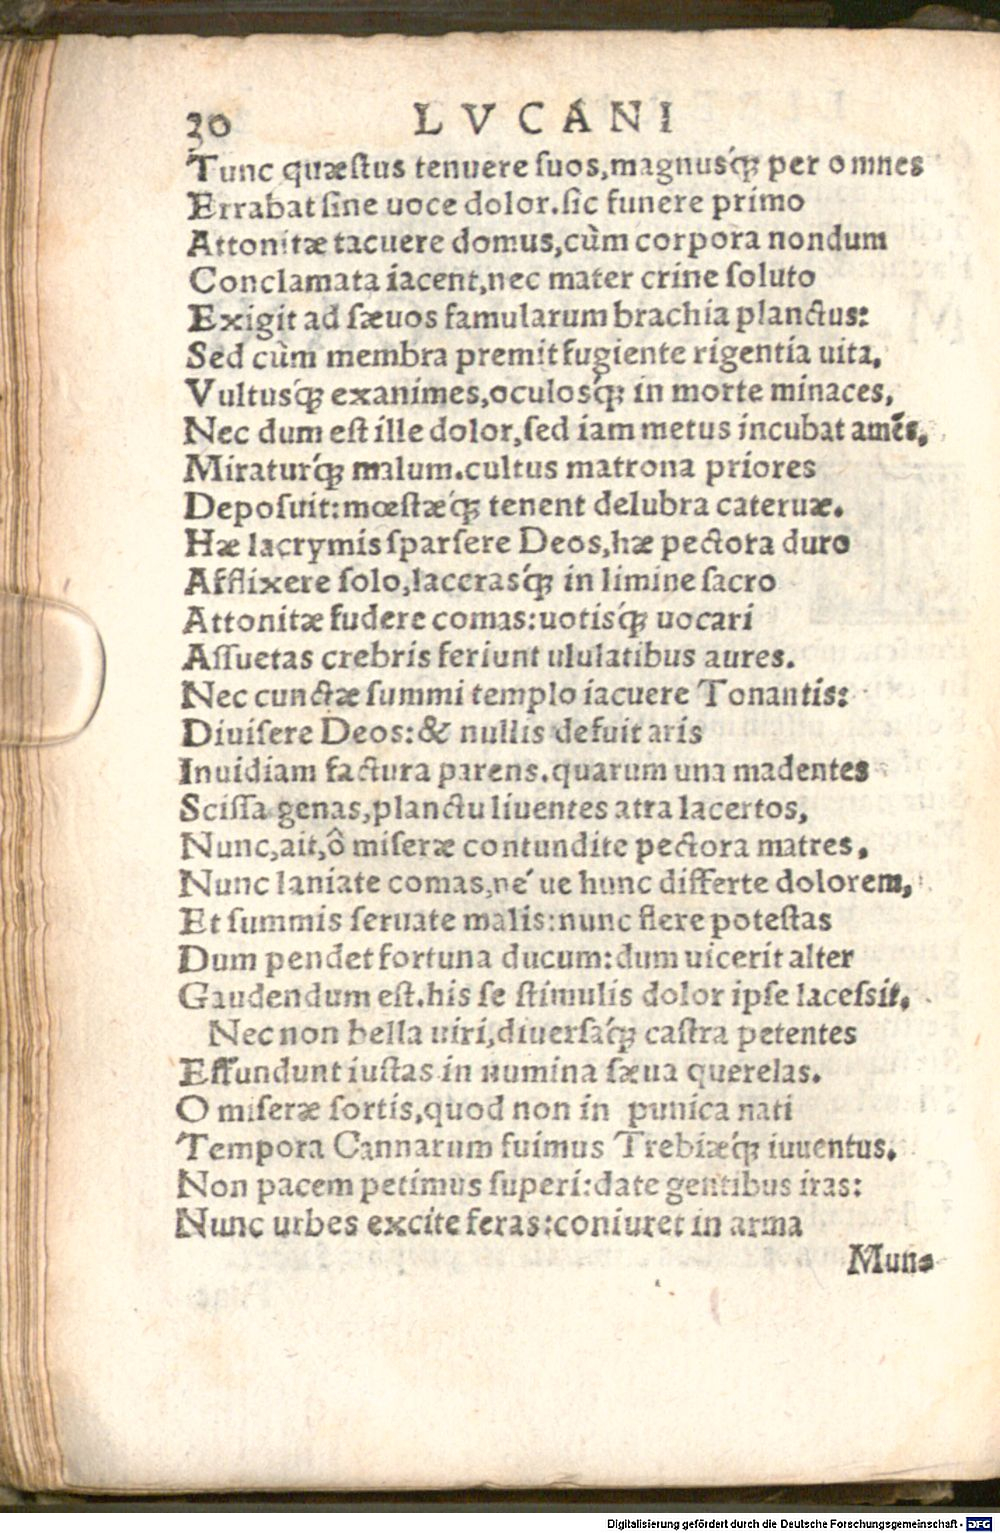 30 LVCANI
Tunc quæstus tenuere suos,magnusq́ue per omnes
Errabat sine uoce dolor.sic funere primo
Attonitæ tacuere domus,cùm corpora nondum
Conclamata iacent,nec mater crine soluto
Exigit ad sæuos famularum brachia planctus:
Sed cùm membra premit fugiente rigentia uita,
Vultusq́ue exanimes,oculosq́ue in morte minaces,
Nec dum est ille dolor,sed iam metus incubat amẽs,
Miraturq́ue malum.cultus matrona priores
Deposuit:mœstæq́ue tenent delubra cateruæ.
Hæ lacrymis sparsere Deos,hæ pectora duro
Afflixere solo,lacerasq́ue in limine sacro
Attonitæ fudere comas:uotisq́ue uocari
Assuetas crebris feriunt ululatibus aures.
Nec cunctæ summi templo iacuere Tonantis:
Diuisere Deos:& nullis defuit aris
Inuidiam factura parens.quarum una madentes
Scissa genas,planctu liuentes atra lacertos,
Nunc,ait,ô miseræ contundite pectora matres,
Nunc laniate comas,né ue hunc differte dolorem,
Et summis seruate malis:nunc flere potestas
Dum pendet fortuna ducum:dum uicerit alter
Gaudendum est.his se stimulis dolor ipse lacessit.
Nec non bella uiri,diuersaq́ue castra petentes
Effundunt iustas in numina sæua querelas.
O miseræ sortis,quod non in punica nati
Tempora Cannarum fuimus Trebiæq́ue iuuentus.
Non pacem petimus superi:date gentibus iras:
Nunc urbes excite feras:coniuret in arma
Mun-
Digitalisierung gefördert durch die Deutsche Forschungsgemeinschaft - DFG